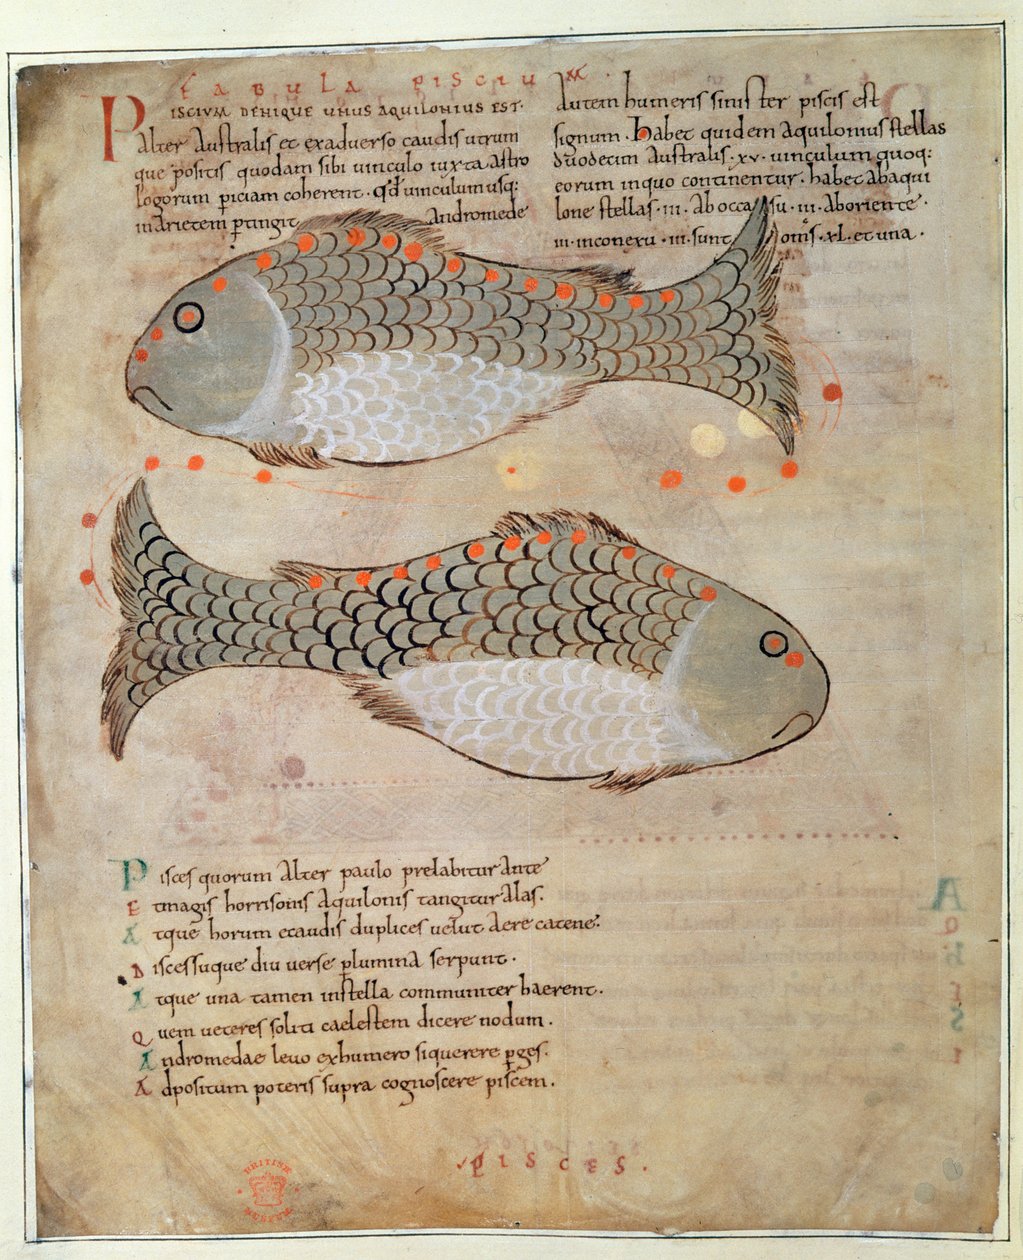 FABULA PISCIUM.
PISCIUM DENIQUE UNUS AQUILONIUS EST.
Alter Australis et exadverso caudis utrum
que positis quodam sibi uinculo iuxta astro
logorum p̱iciam coherent. qđ uinculum usq:
in arietem p̱tingit Andromede
Autem humeris sinister piscis est
signum. habet quidem aquilonius stellas
duodecim Australis. xv. uinculum quoq:
eorum in quo continentur. habet ab aqui
lone stellas. iii. Ab occasu. iii. Ab oriente.
iii. in conexu. iii. sunt om̅s. xl. et una.
Pisces quorum Alter paulo prelabitur Ante
Et magis horrisonis Aquilonis tangitur alas.
Atque horum ecaudis duplices uelut Aere catene?
Discessuque diu uerse p̱ lumina serpunt.
Atque una tamen in stella communiter haerent.
Quem ueteres soliti caelestem dicere nodum.
Andromedae leuo ex humero si querere p̱ges.
Adpositum poteris supra cognoscere piscem.
PISCES.
BRITISH MUSEUM